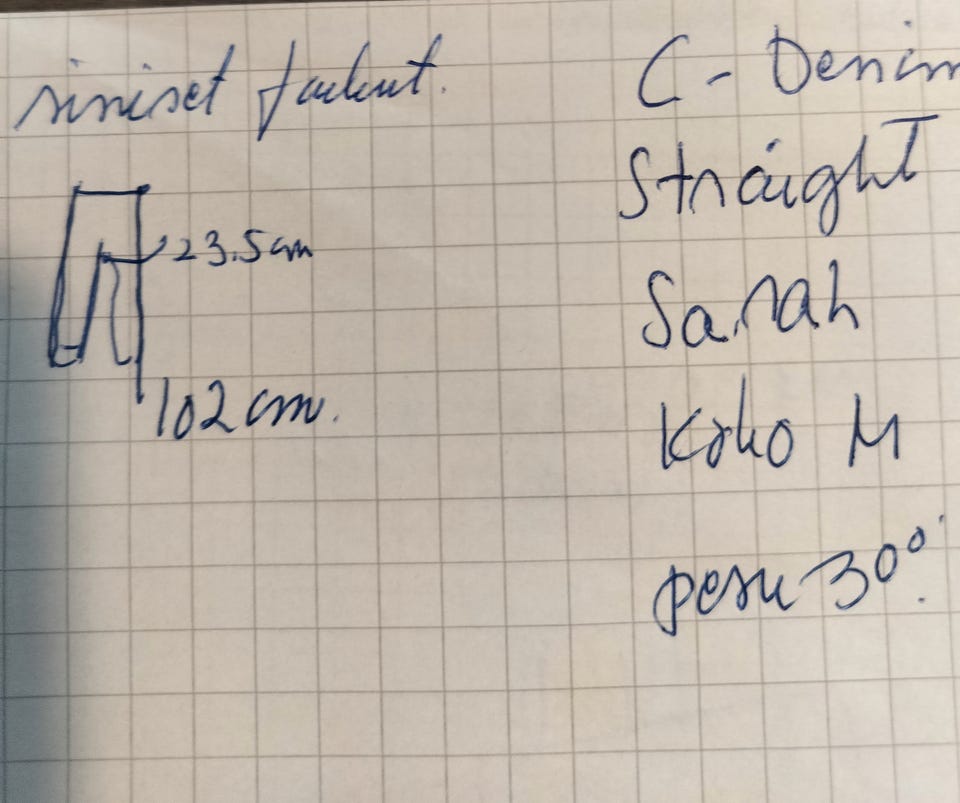 siniset farkut.
23.5 cm
102 cm.
C - Denim
Straight
Sarah
Koko M
pesu 30°.